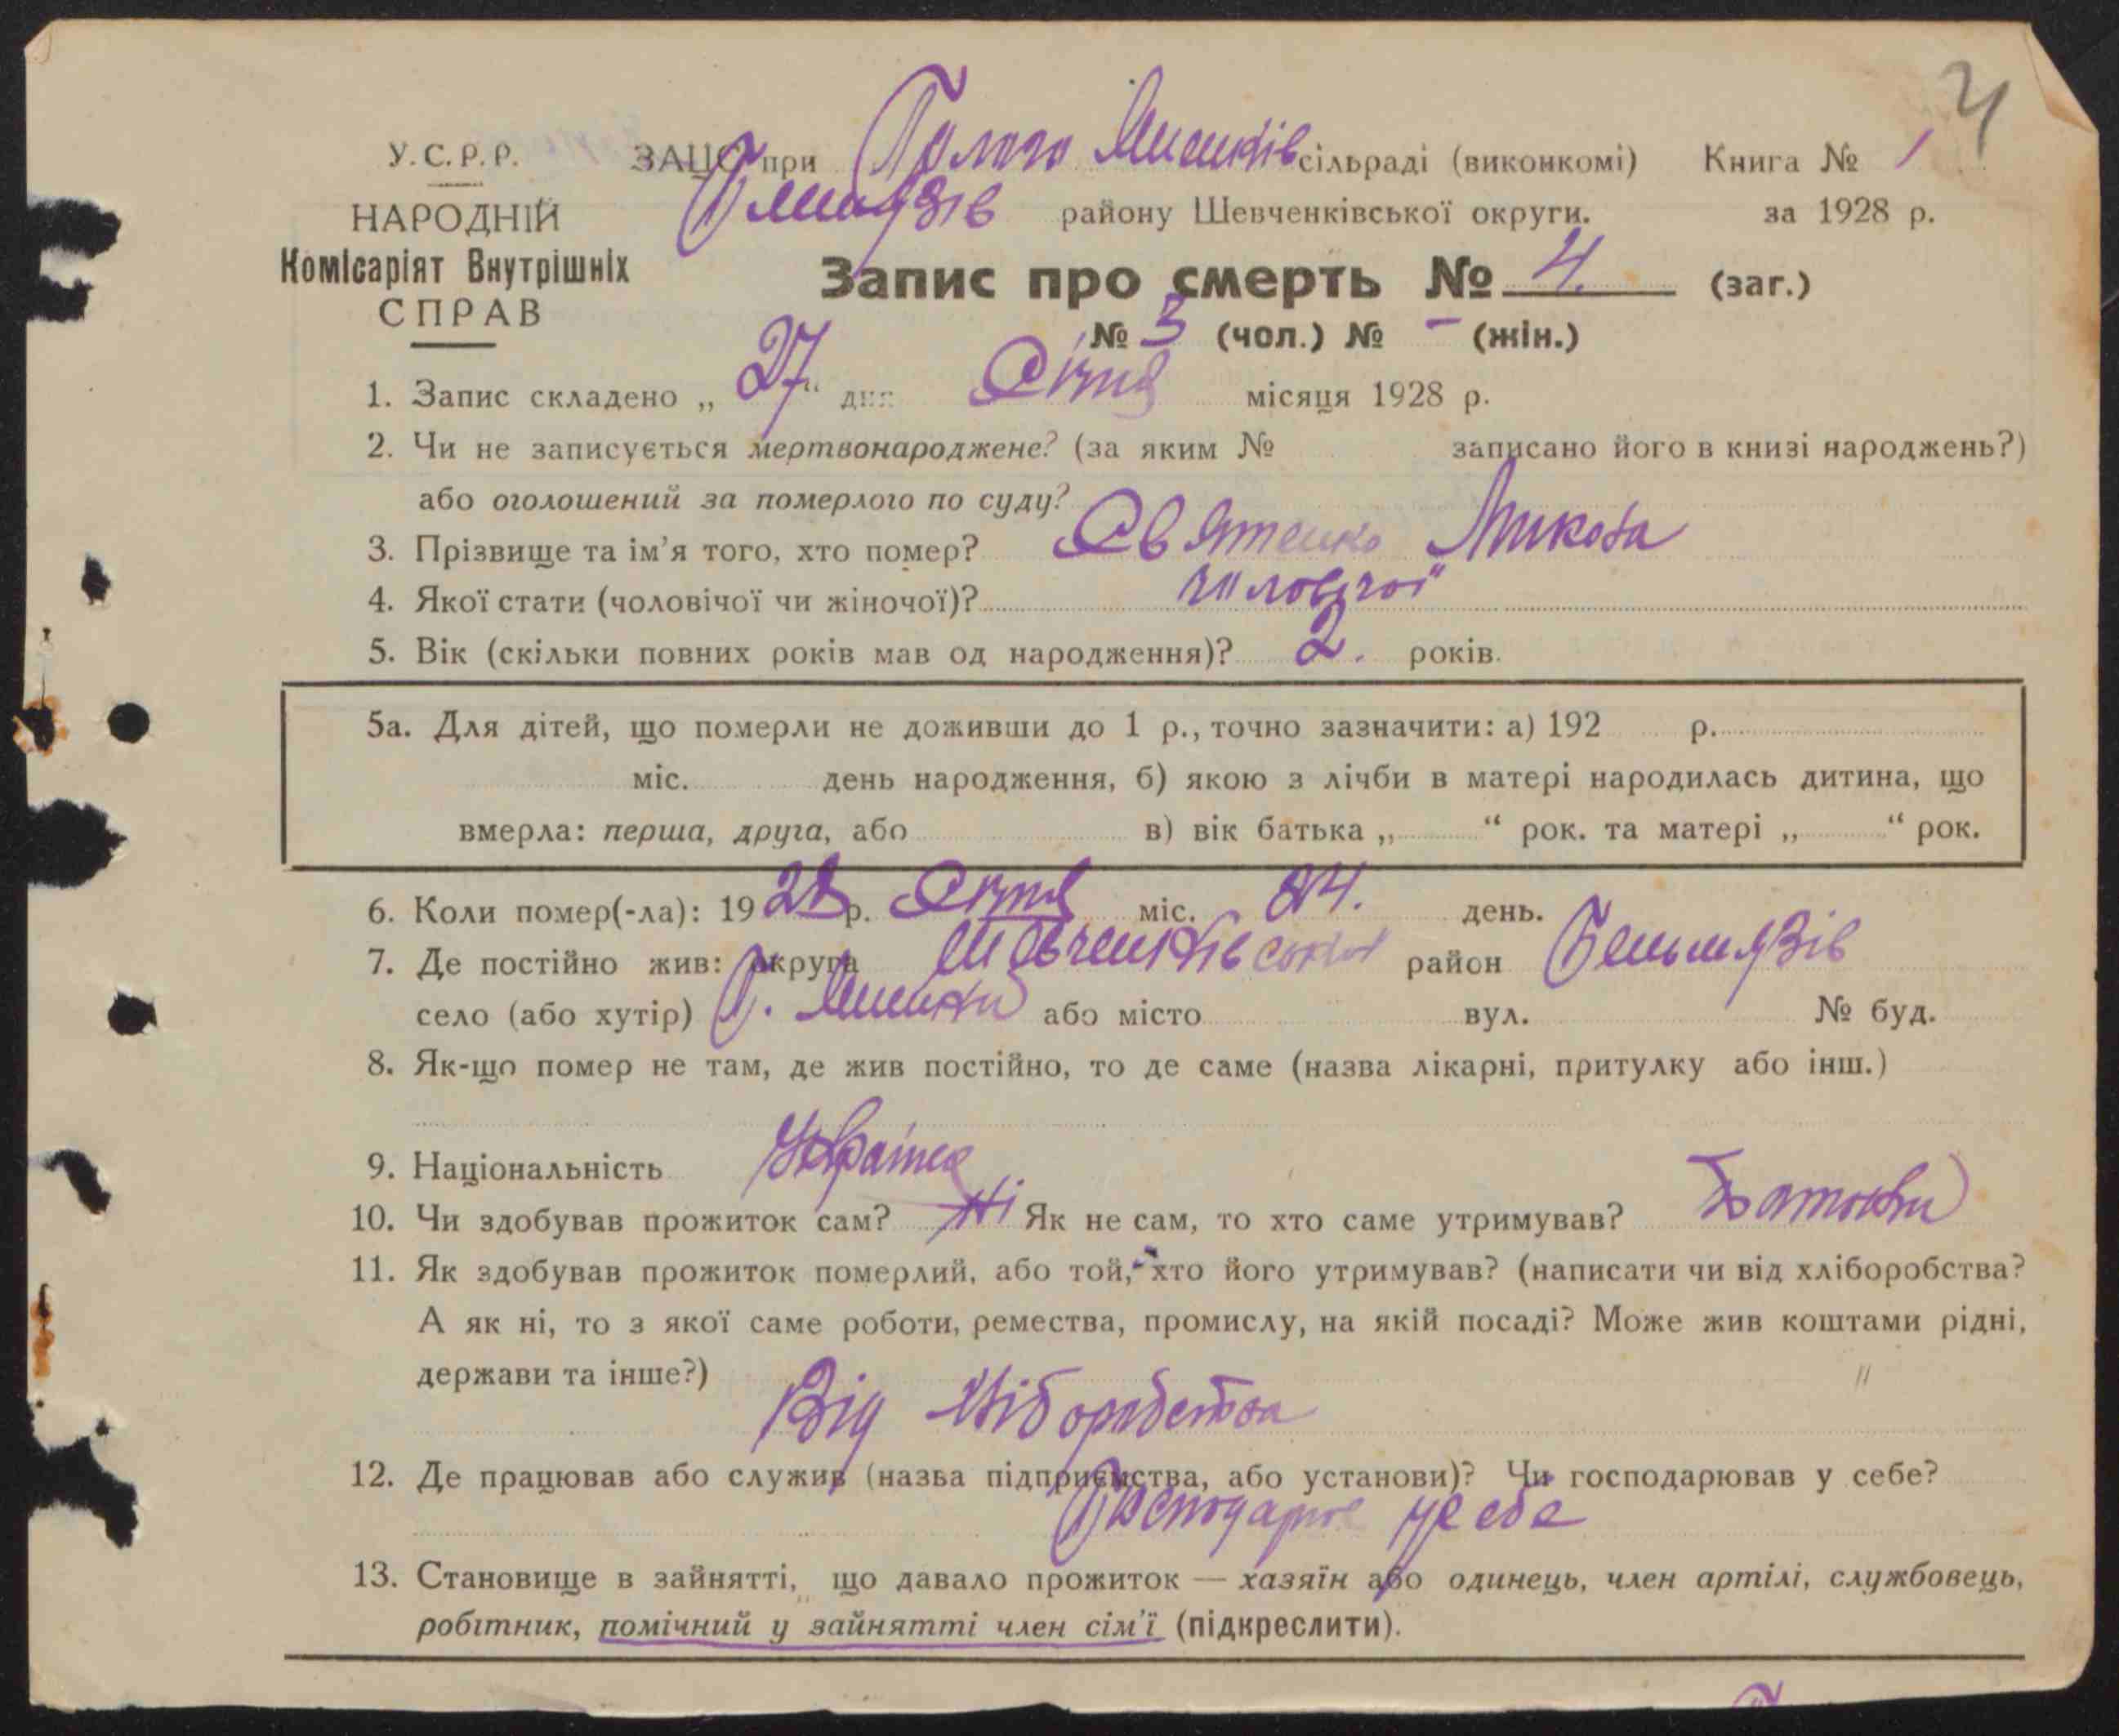 4
У.С.Р.Р. ЗАЦС при сільраді (виконкомі) Книга № 1
НАРОДНІЙ району Шевченківської округи. за 1928 р.
Комісаріят Внутрішніх
СПРАВ
Запис про смерть № 4. (заг.)
№ 3 (чол.) № - (жін.)
1. Запис складено „27“ дня Січня місяця 1928 р.
2. Чи не записується мертвонароджене? (за яким № записано його в книзі народжень?)
або оголошений за померлого по суду?
3. Прізвище та ім’я того, хто помер? Святенко Микола
4. Якої стати (чоловічої чи жіночої)? чоловічої
5. Вік (скільки повних років мав од народження)? 2. років.
5а. Для дітей, що померли не доживши до 1 р., точно зазначити: а) 192 р.
міс. день народження, б) якою з лічби в матері народилась дитина, що
вмерла: перша, друга, або в) вік батька „ “ рок. та матері „ “ рок.
6. Коли помер(-ла): 1928 р. Січня міс. 24. день.
7. Де постійно жив: округа Шевченківська район
село (або хутір) Г. або місто вул. № буд.
8. Як-що помер не там, де жив постійно, то де саме (назва лікарні, притулку або інш.)
9. Національність
10. Чи здобував прожиток сам? Ні Як не сам, то хто саме утримував? Батьки
11. Як здобував прожиток померлий, або той, хто його утримував? (написати чи від хліборобства?
А як ні, то з якої саме роботи, ремества, промислу, на якій посаді? Може жив коштами рідні,
держави та інше?)
Від хліборобства
12. Де працював або служив (назва підприємства, або установи)? Чи господарював у себе?
Господарює у себе
13. Становище в зайнятті, що давало прожиток — хазяїн або одинець, член артілі, службовець,
робітник, помічний у зайнятті член сім’ї (підкреслити).